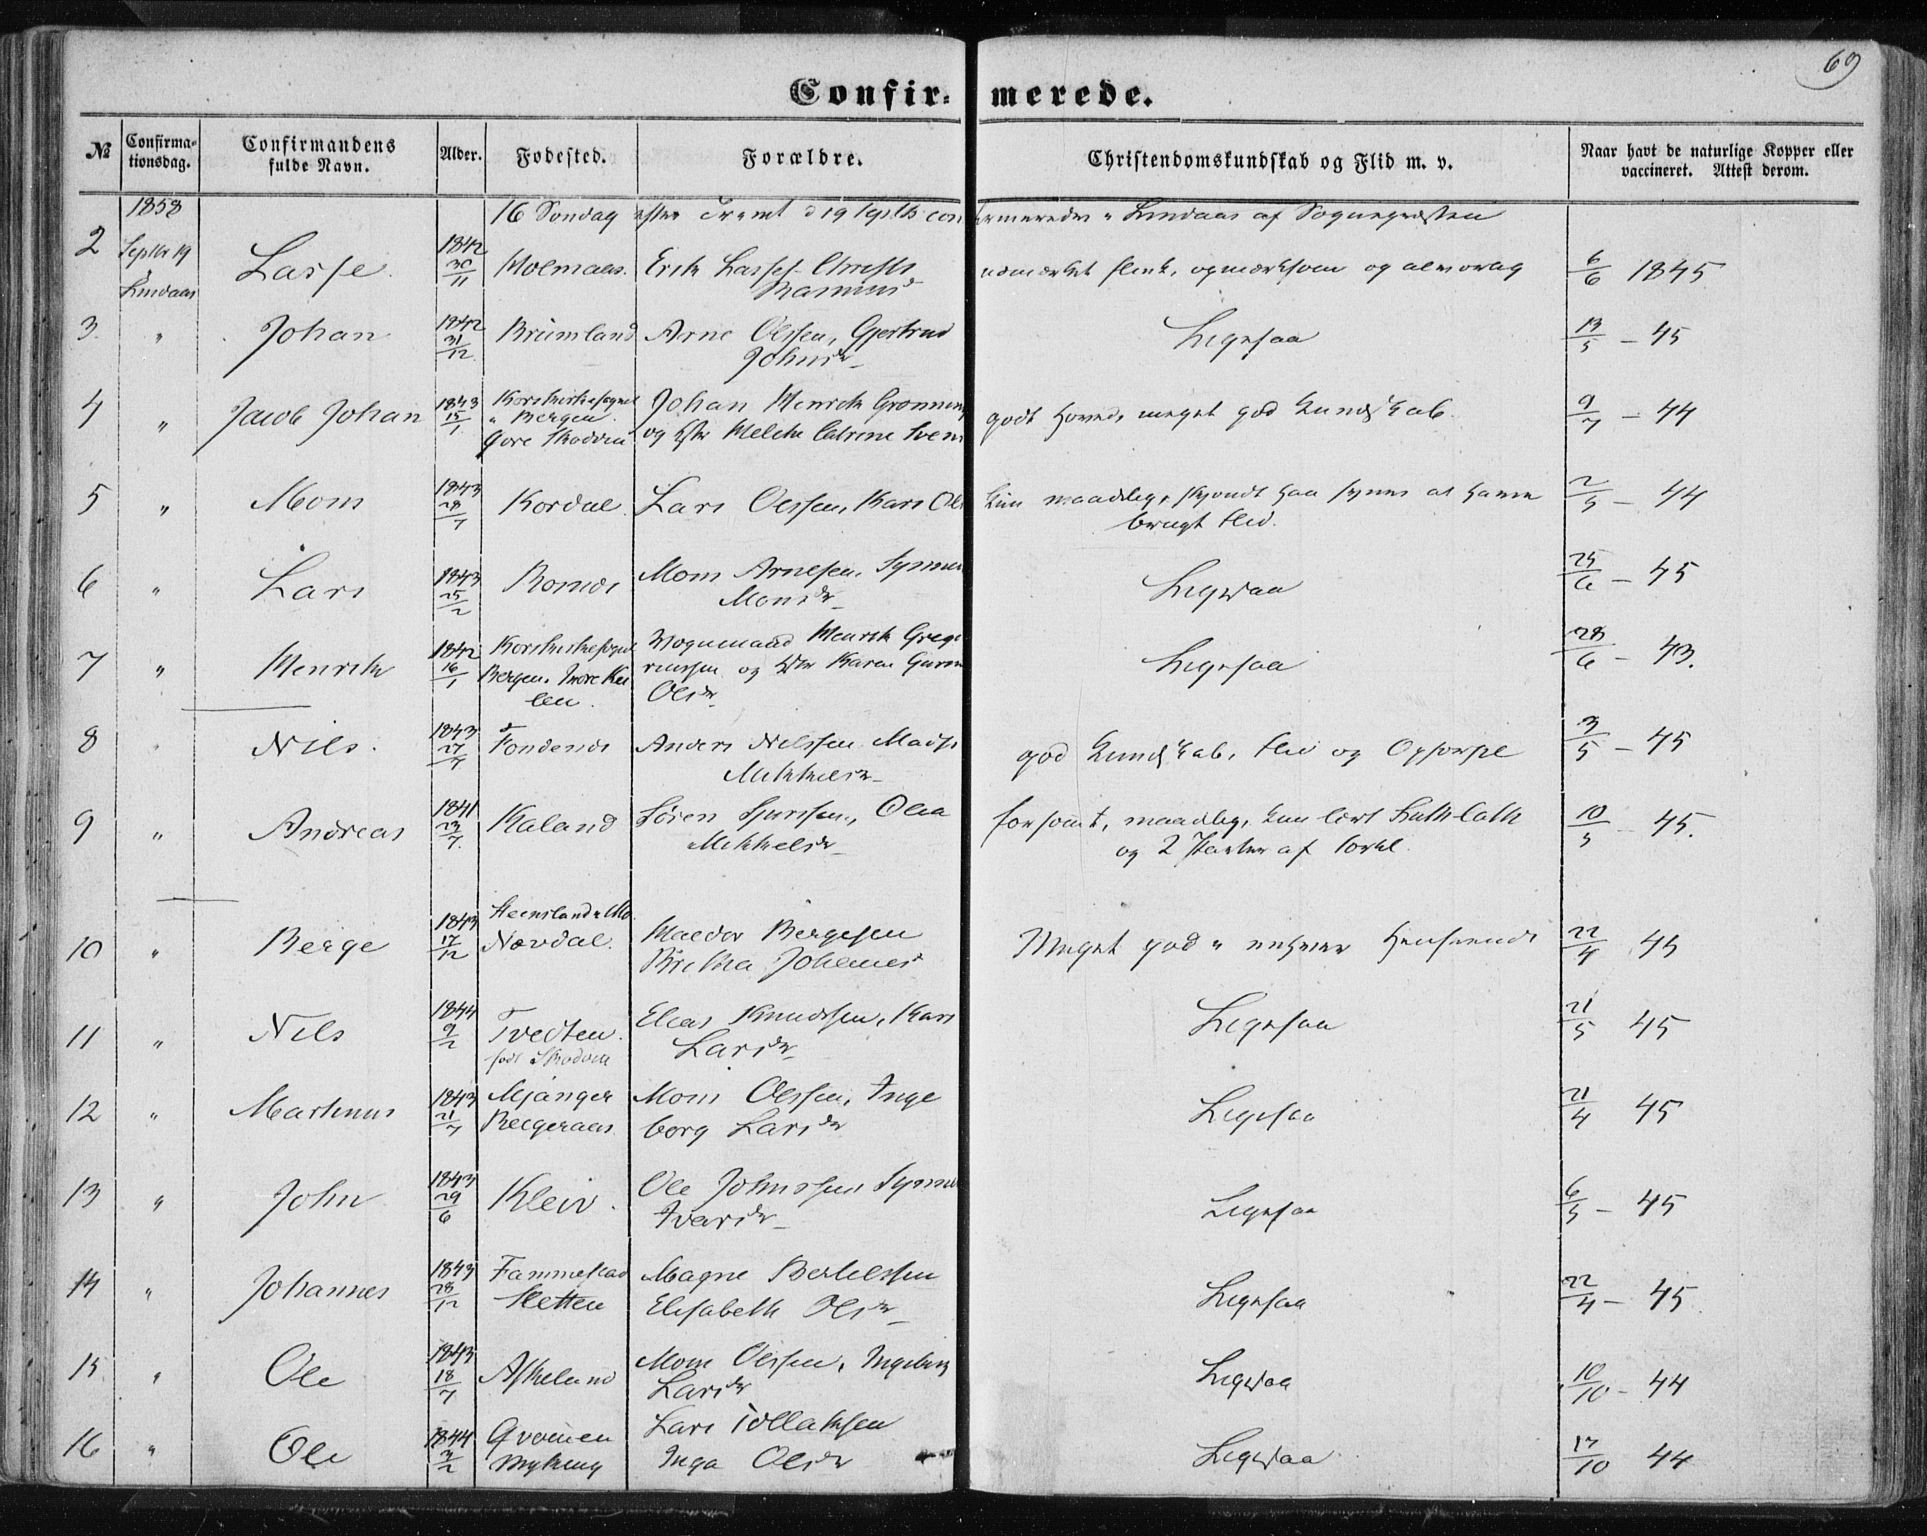 69
Confir- merede.
№ Confirma-tionsdag. Confirmandens fulde Navn. Alder. Fødested. Forældre. Christendomskundskab og Flid m. v. Naar havt de naturlige Kopper eller vaccineret. Attest derom.
1858 16 Søndag efter Trinit d 19 Septbr con firmeredes i Lindaas af Sognepræsten
2 Septbr 19 Lindaas Lasse 1842 30/11 Holmaas. Erik Lasses. Rasmusd udmærket flink, opmærksom og alvorlig 6/6 1845
3. " Johan 1842 31/12 Brümland Arne Olssen, Gjertrud Johnsdr Ligesaa 13/5 - 45
4 " Jacob Johan 1843 15/1 Korskirkesogn i Bergen Johan Henrik Grønning godt Hoved, meget god Kundskab. 9/7 - 44
5 " Mons 1843 28/7 Kordal Lars Olssen, Kari Ols kun maadelig, skjøndt han synes at have
brugt Flid. 2/5 - 44
6 " Lars 1843 25/2 Romar Mons Arnesen, Synneve Monsdr Ligesaa 25/6 - 45
7 " Henrik 1842 16/1 Korskirkesogn Bergen. Vognmand Henrik Grego riussen og Karen Olsdr Ligesaa 28/6 - 43.
8 " Nils. 1843 27/4 Fondenes Anders Nilssen Mikkelsdr god Kundskab, Flid og Opførsel 3/5 - 45
9 " Andreas 1841 23/7. Kaland Søren Sjurssen, Olea
Mikkelsdr forsømt, maadelig, kun lært
og 2 Parter af Forkl. 10/5 - 45.
10 " Berge 1843 17/12 Nævdal. Maedor Bergesen
Britha Johannes Meget god i enhver Henseende 22/4 45
11 " Nils 1844 9/2 Tvedten. født Skodvin Elias Knudssen, Kari
Larsdr Ligesaa 21/5 45
12 " Martinus 1843 21/7 Mjanger Mons Olssen, Inge
borg Larsdr Ligesaa 21/4 45
13 " John 1843 29/6 Kleiv. Ole Johnssen Synneve
Ivarsdr Ligesaa 6/5 - 45
14 " Johannes 1843 28/12 Fammestad
Sletten Magne Bertelssen
Elisabeth Olsdr Ligesaa 22/4 - 45
15 " Ole 1843 18/7 Askeland Mons Olssen, Ingeborg
Larsdr Ligesaa 10/10 - 44
16 " Ole 1844 3/2 Qvamen
Myking Lars Tollaksen
Inga Olsdr Ligesaa 17/10 44